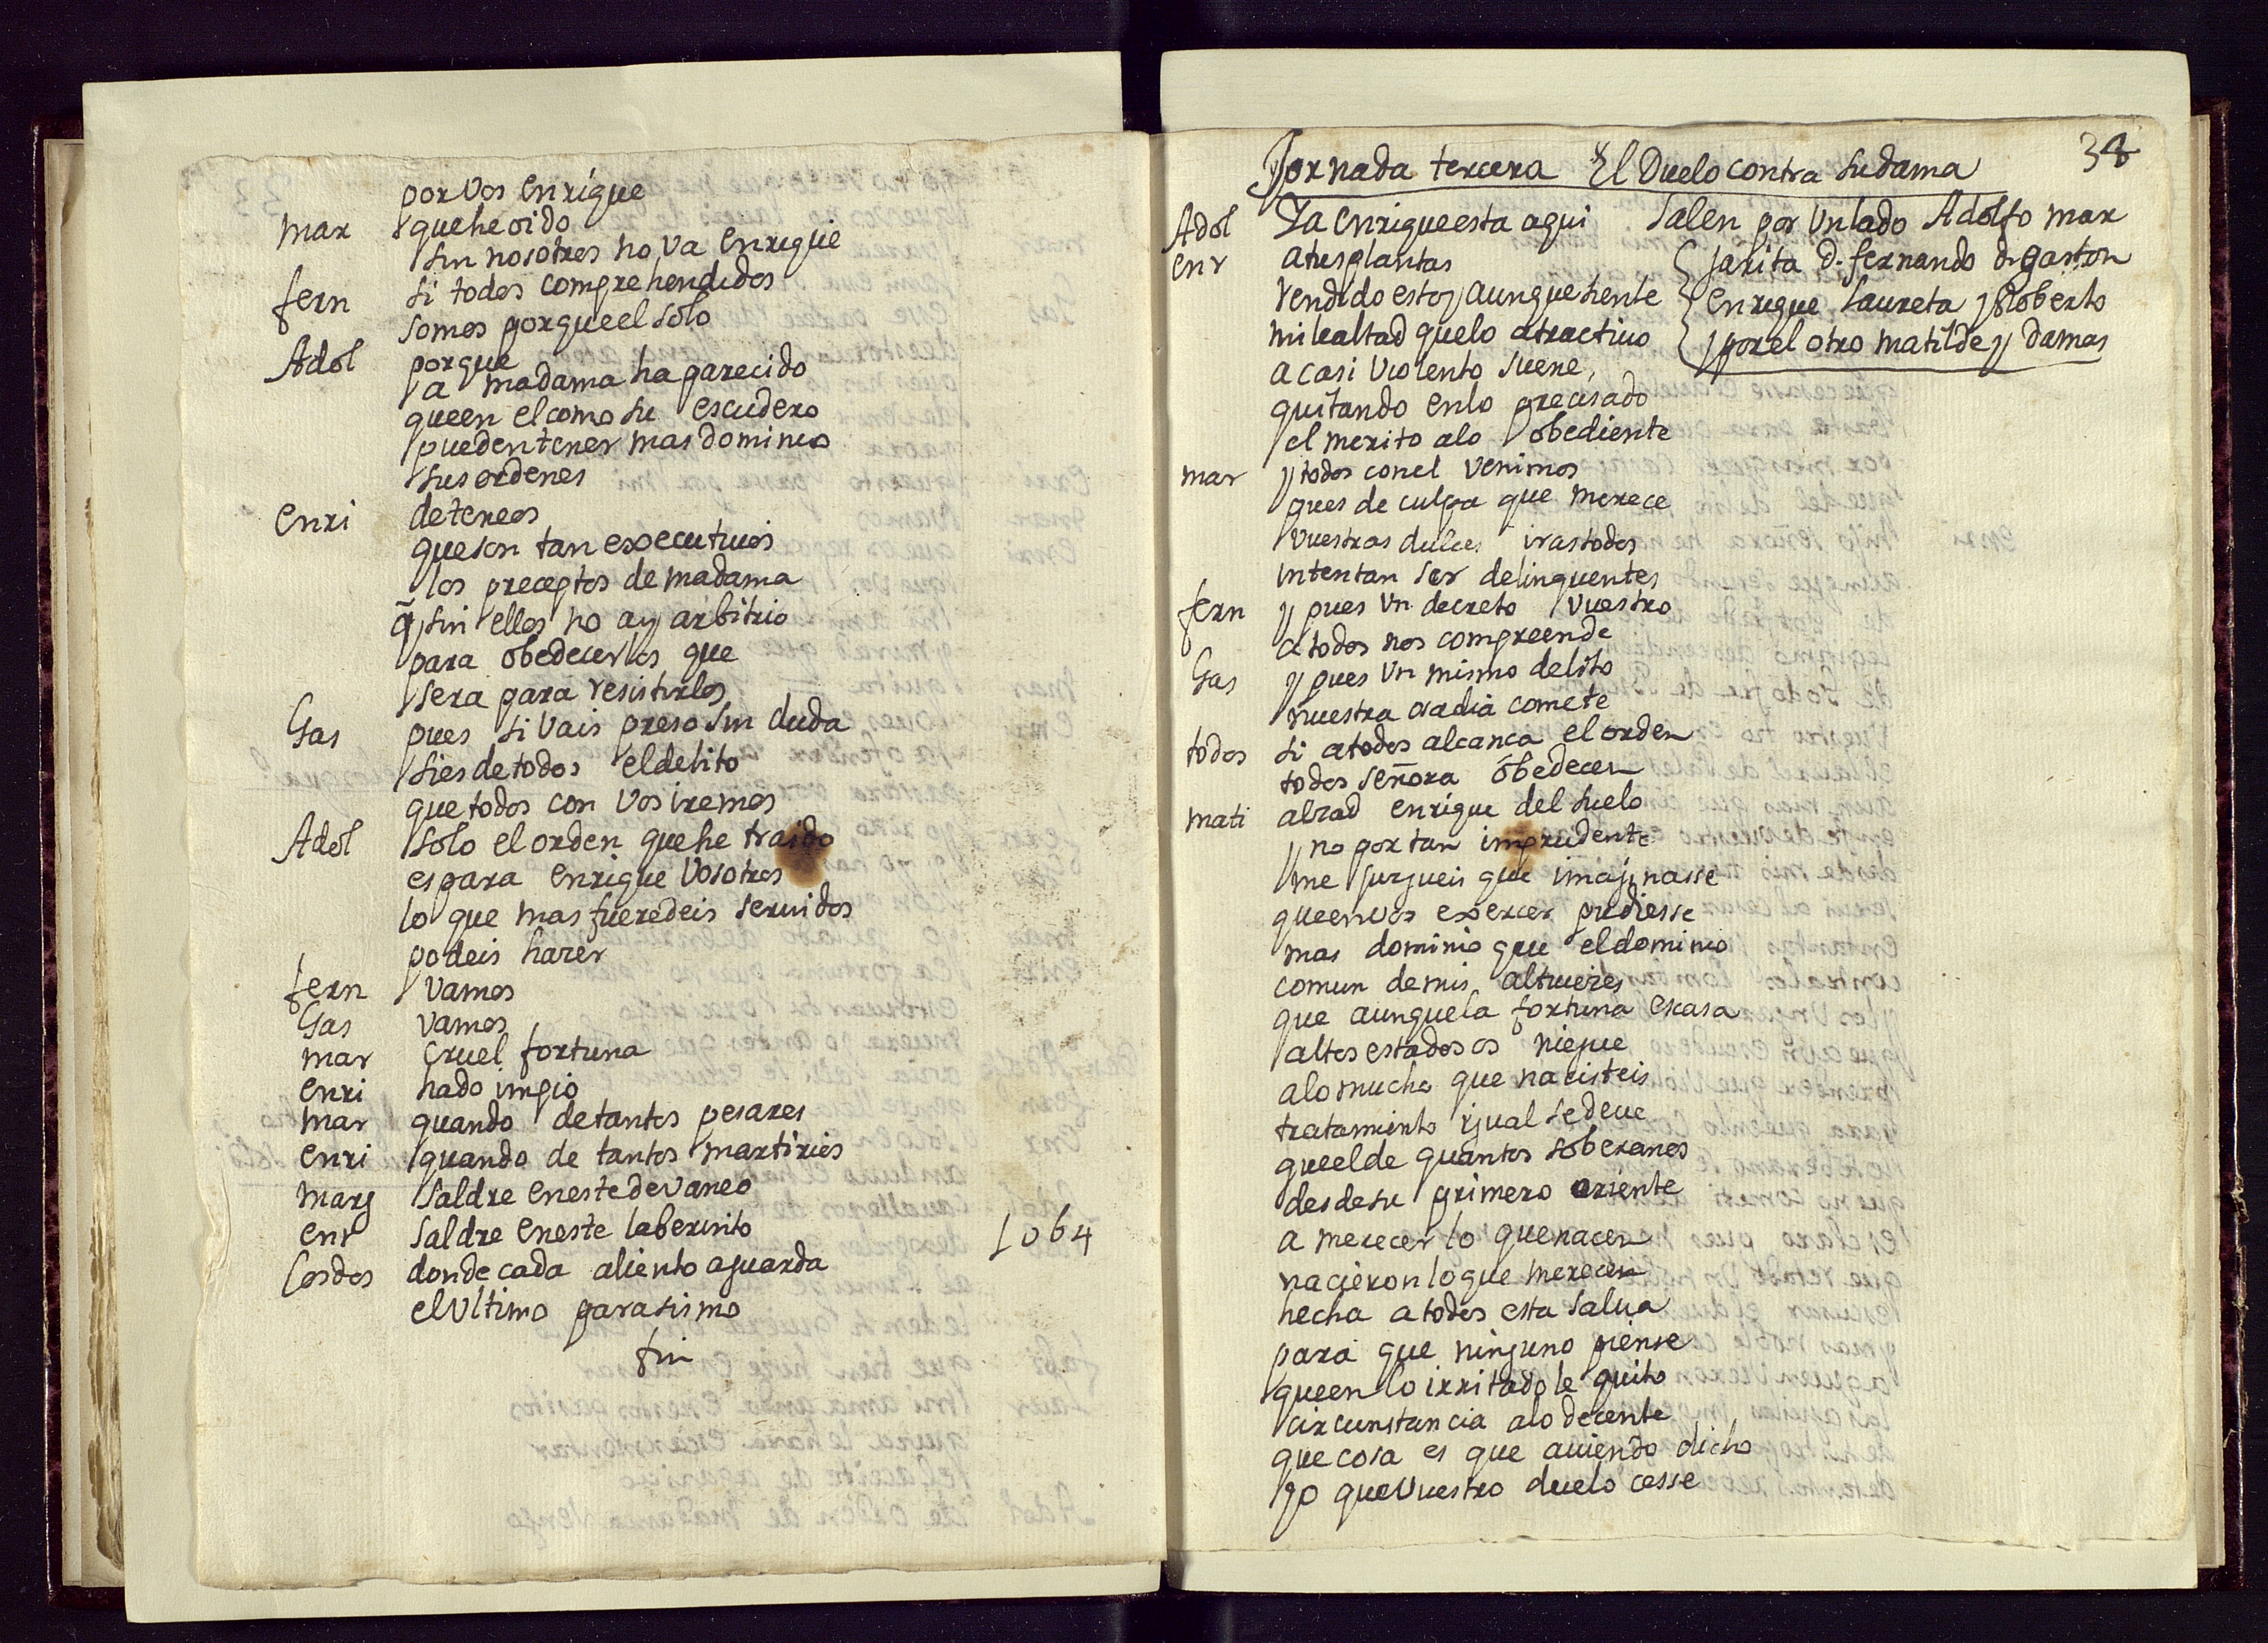 por vos enrique
mar que he oido
sin nosotros no va enrique
fern si todos comprehendidos
somos porque el solo
Adol porque
a madama ha parecido
que en el como su escudero
pueden tener mas dominio
sus ordenes
enri deteneos
que son tan executivos
los preceptos de madama
q̃ sin ellos no ay arbitrio
para obedecerlos que
sera para resistirlos
Gas pues si vais preso sin duda
si es de todos el delito
que todos con vos iremos
Adol solo el orden que he traido
es para enrique vosotros
lo que mas fueredeis servidos
podeis hazer
fern vamos
Gas vamos
mar cruel fortuna
enri hado impio
mar quando de tantos pesares
enri quando de tantos martirios
marg saldre en este devaneo
enr saldre en este laberinto
los dos donde cada aliento aguarda
el ultimo parasismo
fin
1064
38
Jornada tercera El Duelo contra su dama
Salen por un lado Adolfo mar
jarita d. fernando d. gaston
enrique laureta y Roberto
y por el otro matilde y damas
Adol Ya enrique esta aqui
enr a tus plantas
rendido estoy aunque siente
mi lealtad que lo atractivo
a casi violento suene,
quitando en lo precisado
el merito a lo obediente
mar y todos con el venimos
pues de culpa que merece
vuestras dulces iras todos
intentan ser delinquentes
fern y pues un decreto vuestro
a todos nos compreende
Gas y pues un mismo delito
nuestra osadia comete
todos si a todos alcança el orden
todos señora obedecen
mati alzad enrique del suelo
y no por tan imprudente
me jurgueis que imajinasse
que en vos exercer pudiesse
mas dominio que el dominio
comun de mis altiveçes
que aunque la fortuna escasa
altos estados os niegue
a lo mucho que nacisteis
tratamiento ygual se deve
que el de quantos soberanos
desde su primero oriente
a merecer lo que nacen
nacieron lo que merecen
hecha a todos esta salva
para que ninguno piense
que en lo irritado le quito
circunstancia a lo decente
que cosa es que aviendo dicho
yo que vuestro duelo cesse